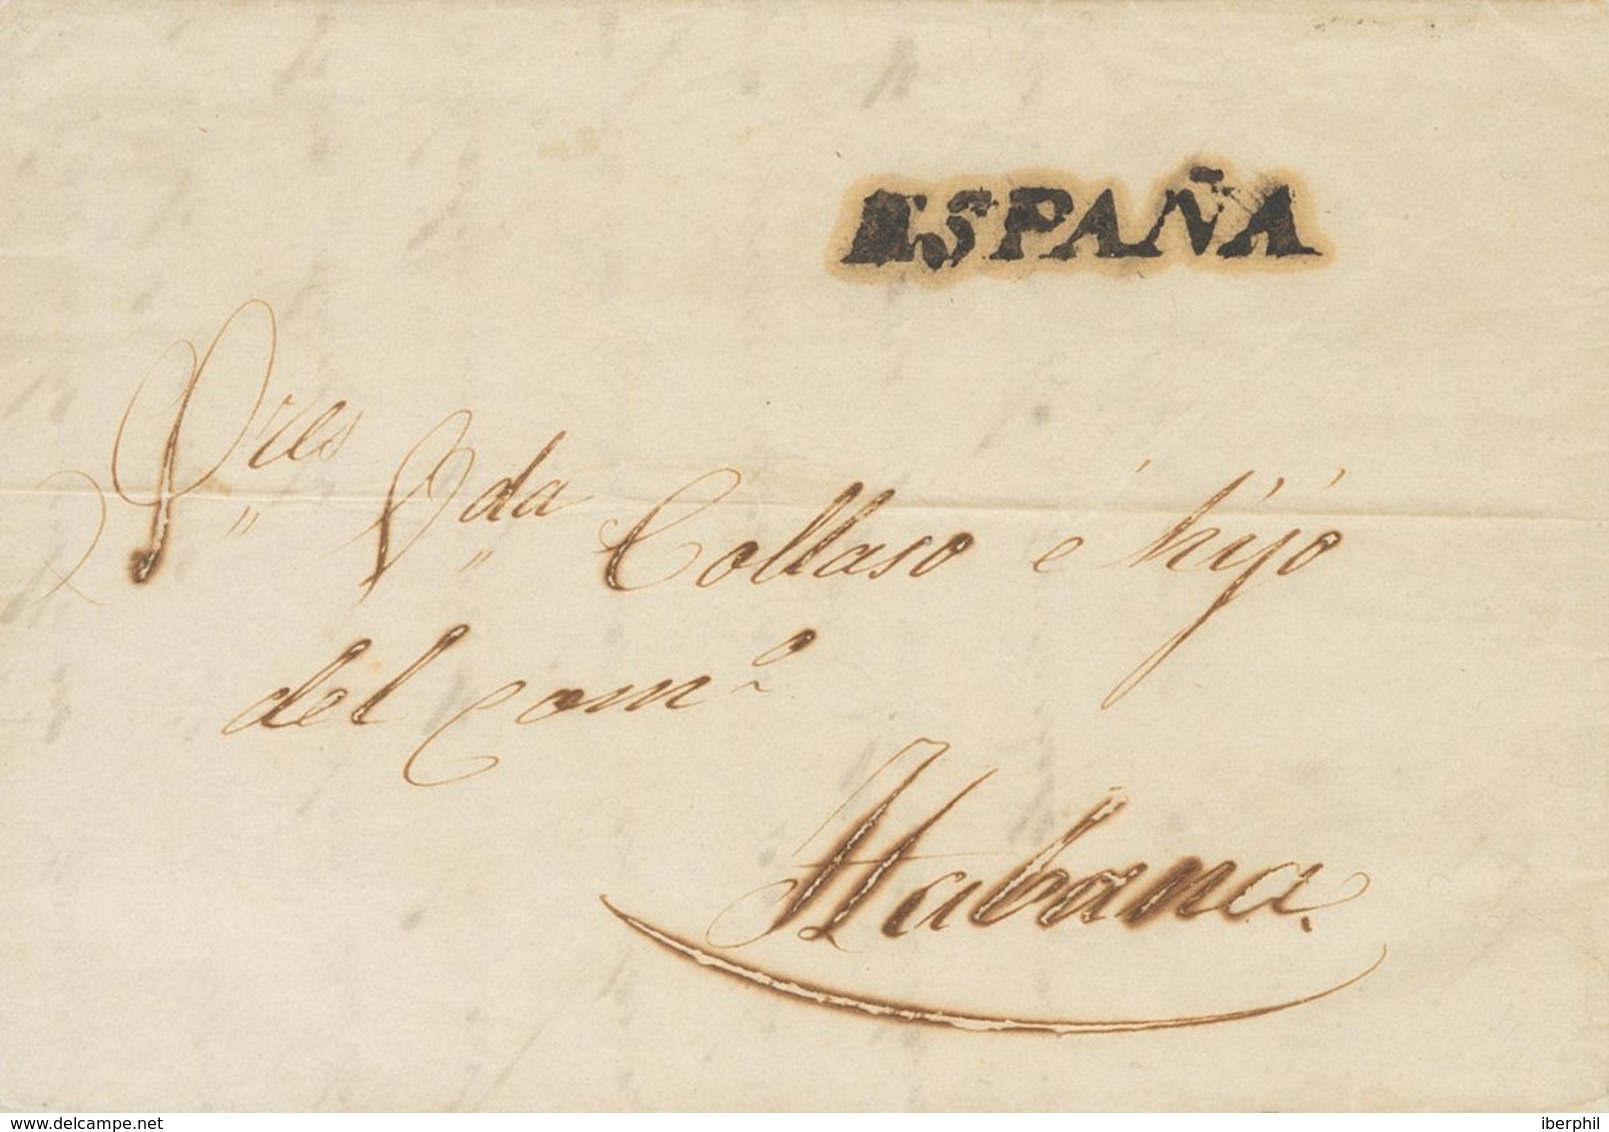 ESPAÑA
Sres Vda Collaso é hijo
del como
Habana.
delcampe.net
iberphil